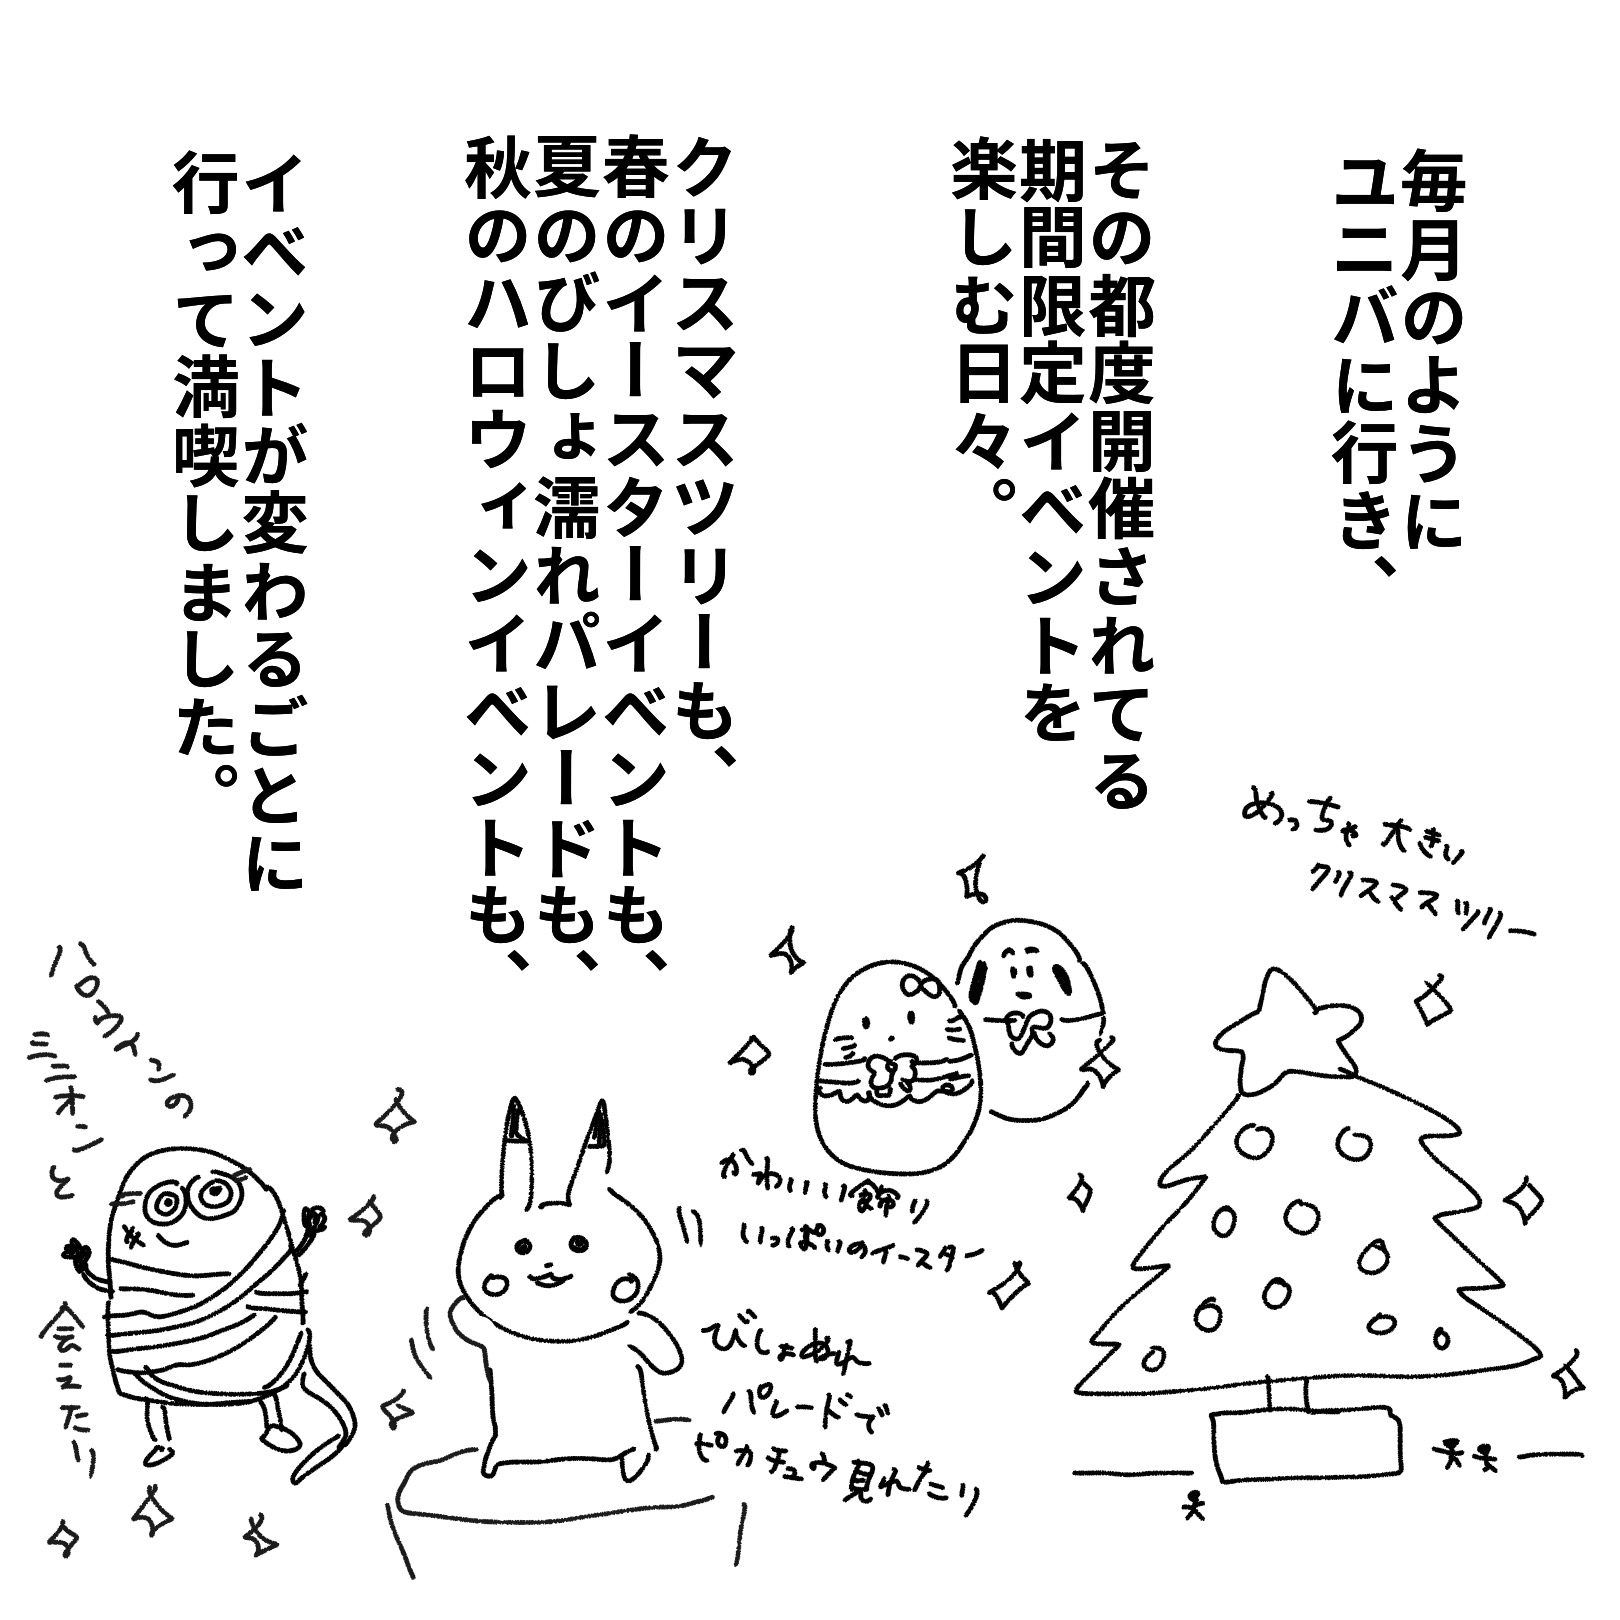 毎月のように
ユニバに行き、
その都度開催されてる
期間限定イベントを
楽しむ日々。
クリスマスツリーも、
春のイースターイベントも、
夏のびしょ濡れパレードも、
秋のハロウィンイベントも、
イベントが変わるごとに
行って満喫しました。
めっちゃ大きい
クリスマスツリー
かわいい飾り
いっぱいのイースター
びしょぬれ
パレードで
ピカチュウ見れたり
ハロウィンの
ミニオンと
会えたり